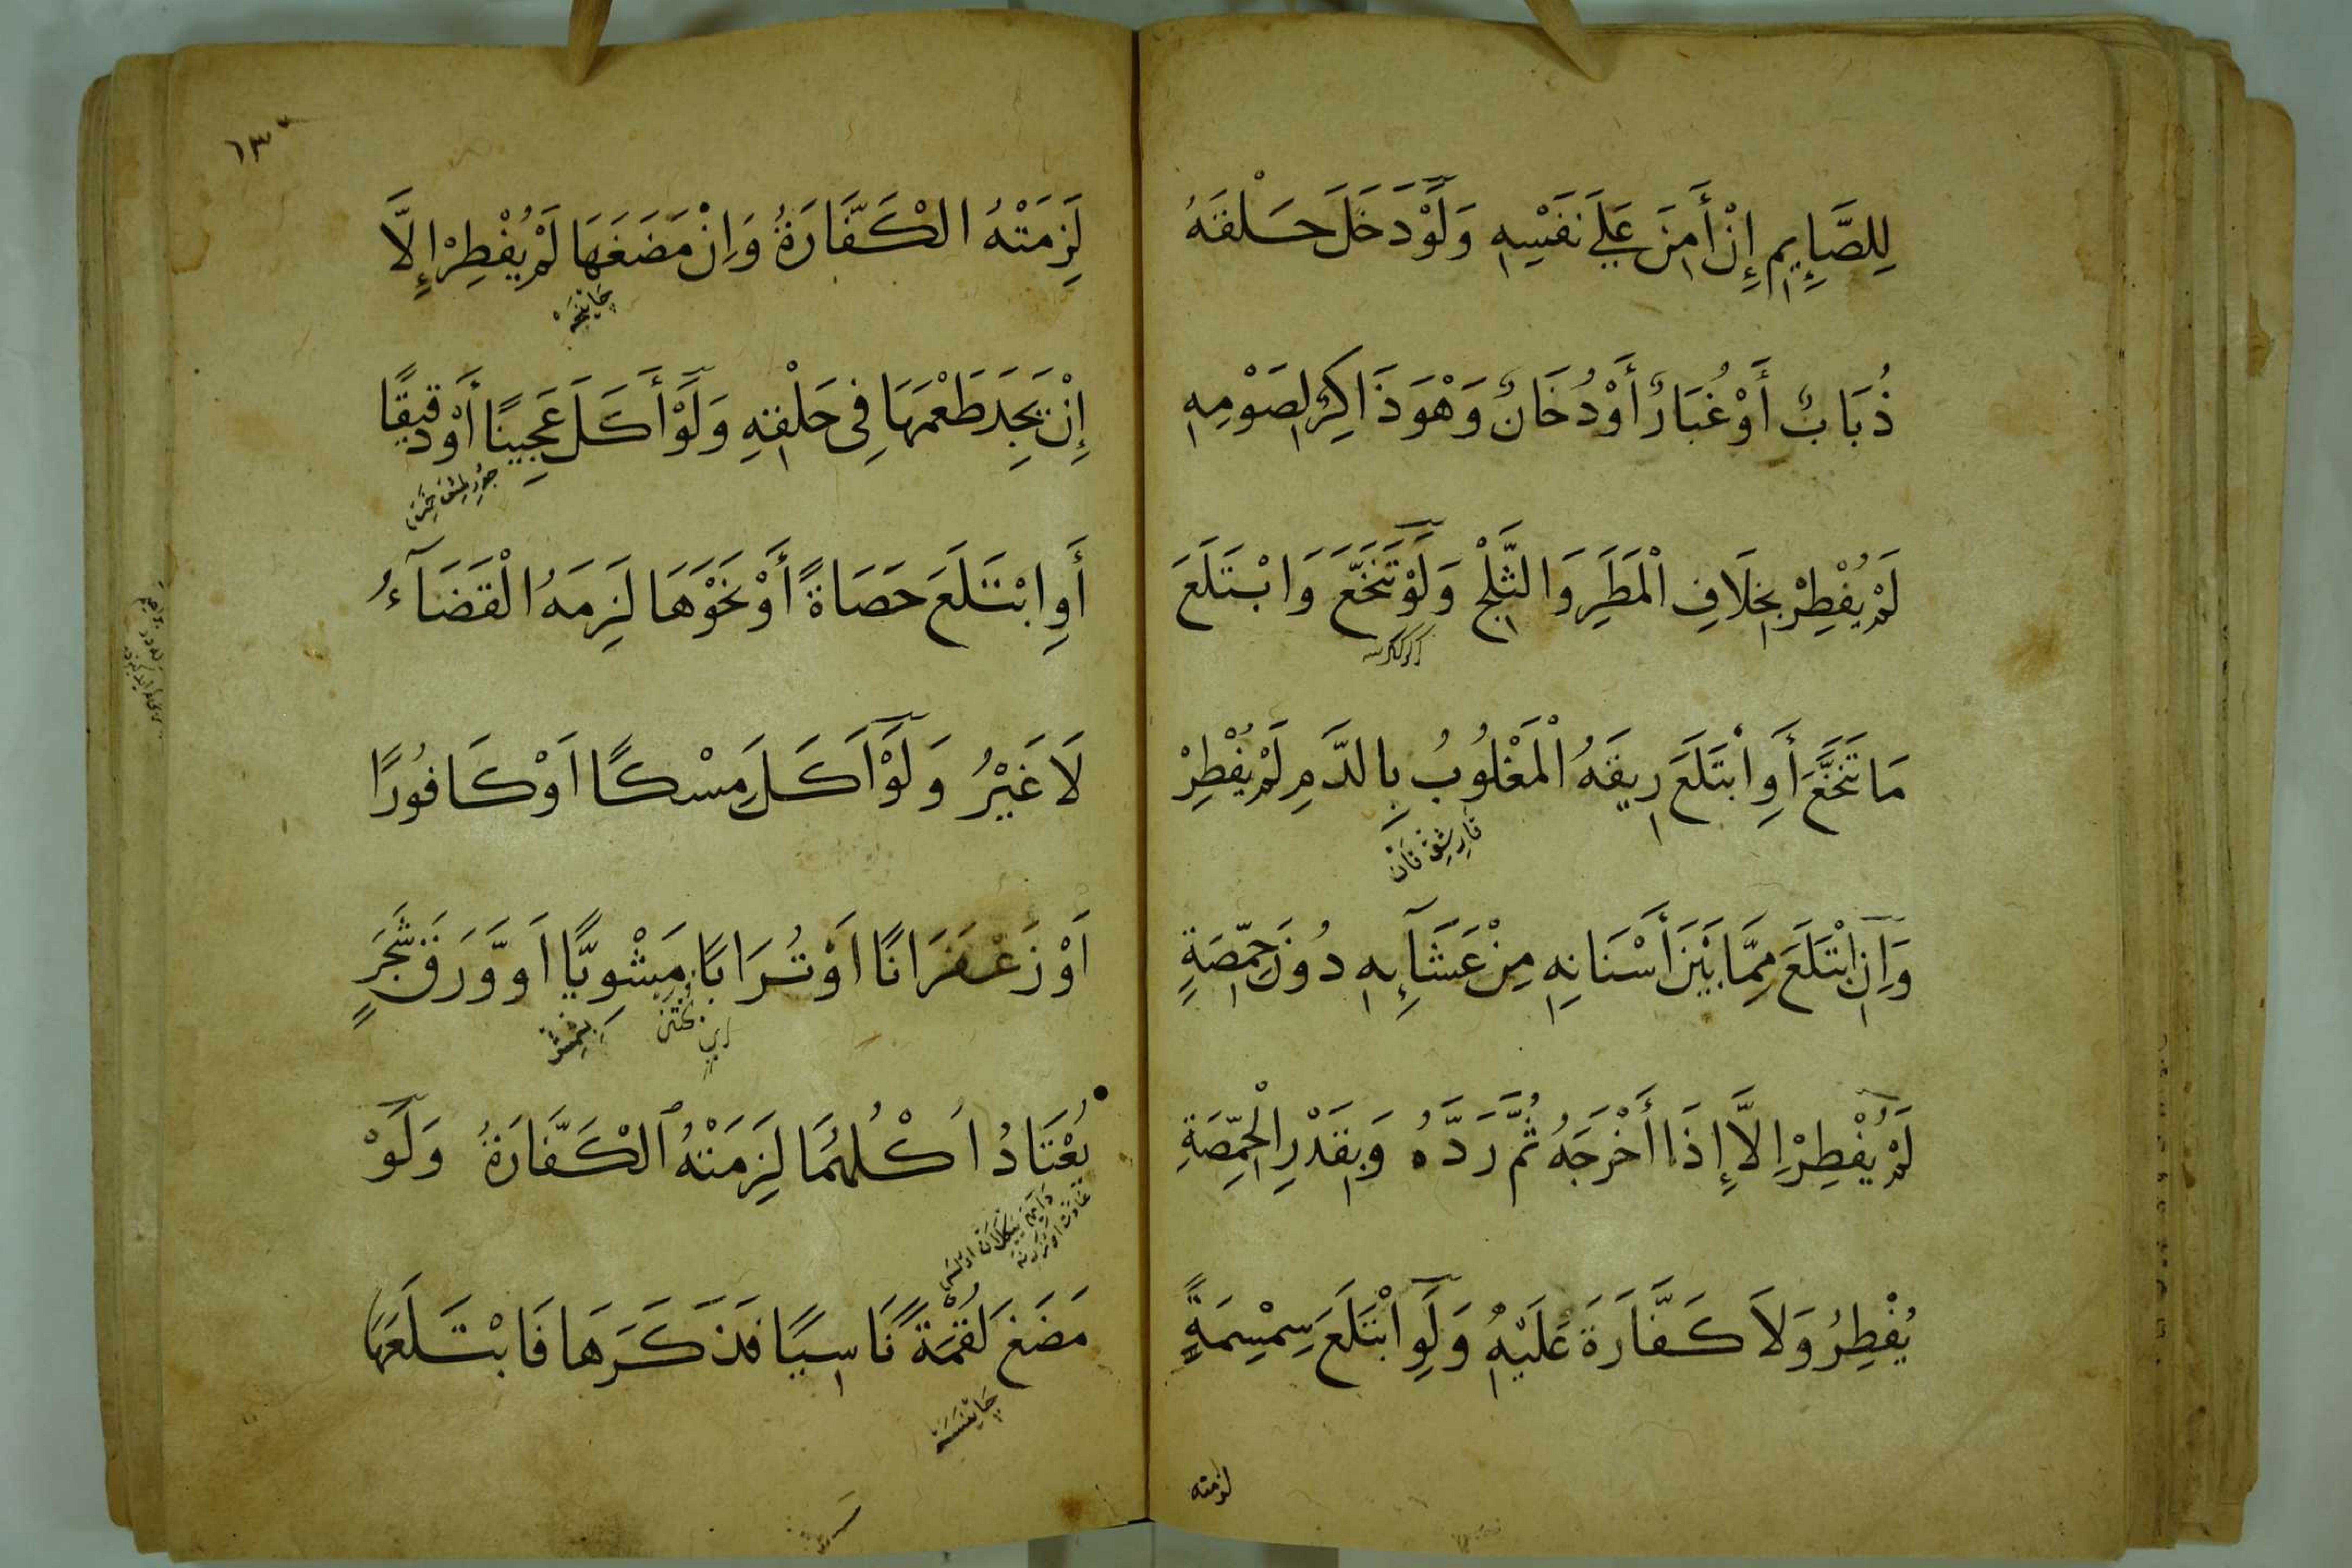 لِلصَّايِمِ إِنْ أَمِنَ عَلَى نَفْسِهِ وَلَوْ دَخَلَ حَلْقَهُ
ذُبَابٌ أَوْ غُبَارٌ أَوْ دُخَانٌ وَهْوَ ذَاكِرٌ لِصَوْمِهِ
لَمْ يُفْطِرْ بِخِلَافِ الْمَطَرِ وَالثَّلْجِ وَلَوْ تَنَخَّعَ وَابْتَلَعَ
مَا تَنَخَّعَ أَوِ ابْتَلَعَ رِيقَهُ الْمَغْلُوبُ بِالدَّمِ لَمْ يُفْطِرْ
وَاِنِ ابْتَلَعَ مِمَّا بَيْنَ أَسْنَانِهِ مِنْ عَشَآئِهِ دُونَ حِمِّصَةٍ
لَمْ يُفْطِرْ اِلَّا إِذَا أَخْرَجَهُ ثُمَّ رَدَّهُ وَبِقَدْرِ الْحِمِّصَةِ
يُفْطِرُ وَلَا كَفَّارَةَ عَلَيْهِ وَلَوِ ابْتَلَعَ سِمْسِمَةً
لزمته
١٣٠
لَزِمَتْهُ الْكَفَّارَةُ وَاِنْ مَضَغَهَا لَمْ يُفْطِرْ إِلَّا
إِنْ يَجِدَ طَعْمَهَا فِى حَلْقِهِ وَلَوْ أَكَلَ عَجِينًا أَوْ دَقِيقًا
أَوِ ابْتَلَعَ حَصَاةً أَوْ نَحْوَهَا لَزِمَهُ الْقَضَآءُ
لَا غَيْرُ وَلَوْ اَكَلَ مِسْكًا اَوْ كَافُورًا
اَوْ زَعْفَرَانًا اَوْ تُرَابًا مَشْوِيًّا اَوْ وَرَقَ شَجَرٍ
يُعْتَادُ اَكْلُهُمَا لَزِمَتْهُ الْكَفَّارَةُ وَلَوْ
مَضَغَ لُقْمَةً نَاسِيًا فَذَكَرَهَا فَابْتَلَعَهَا